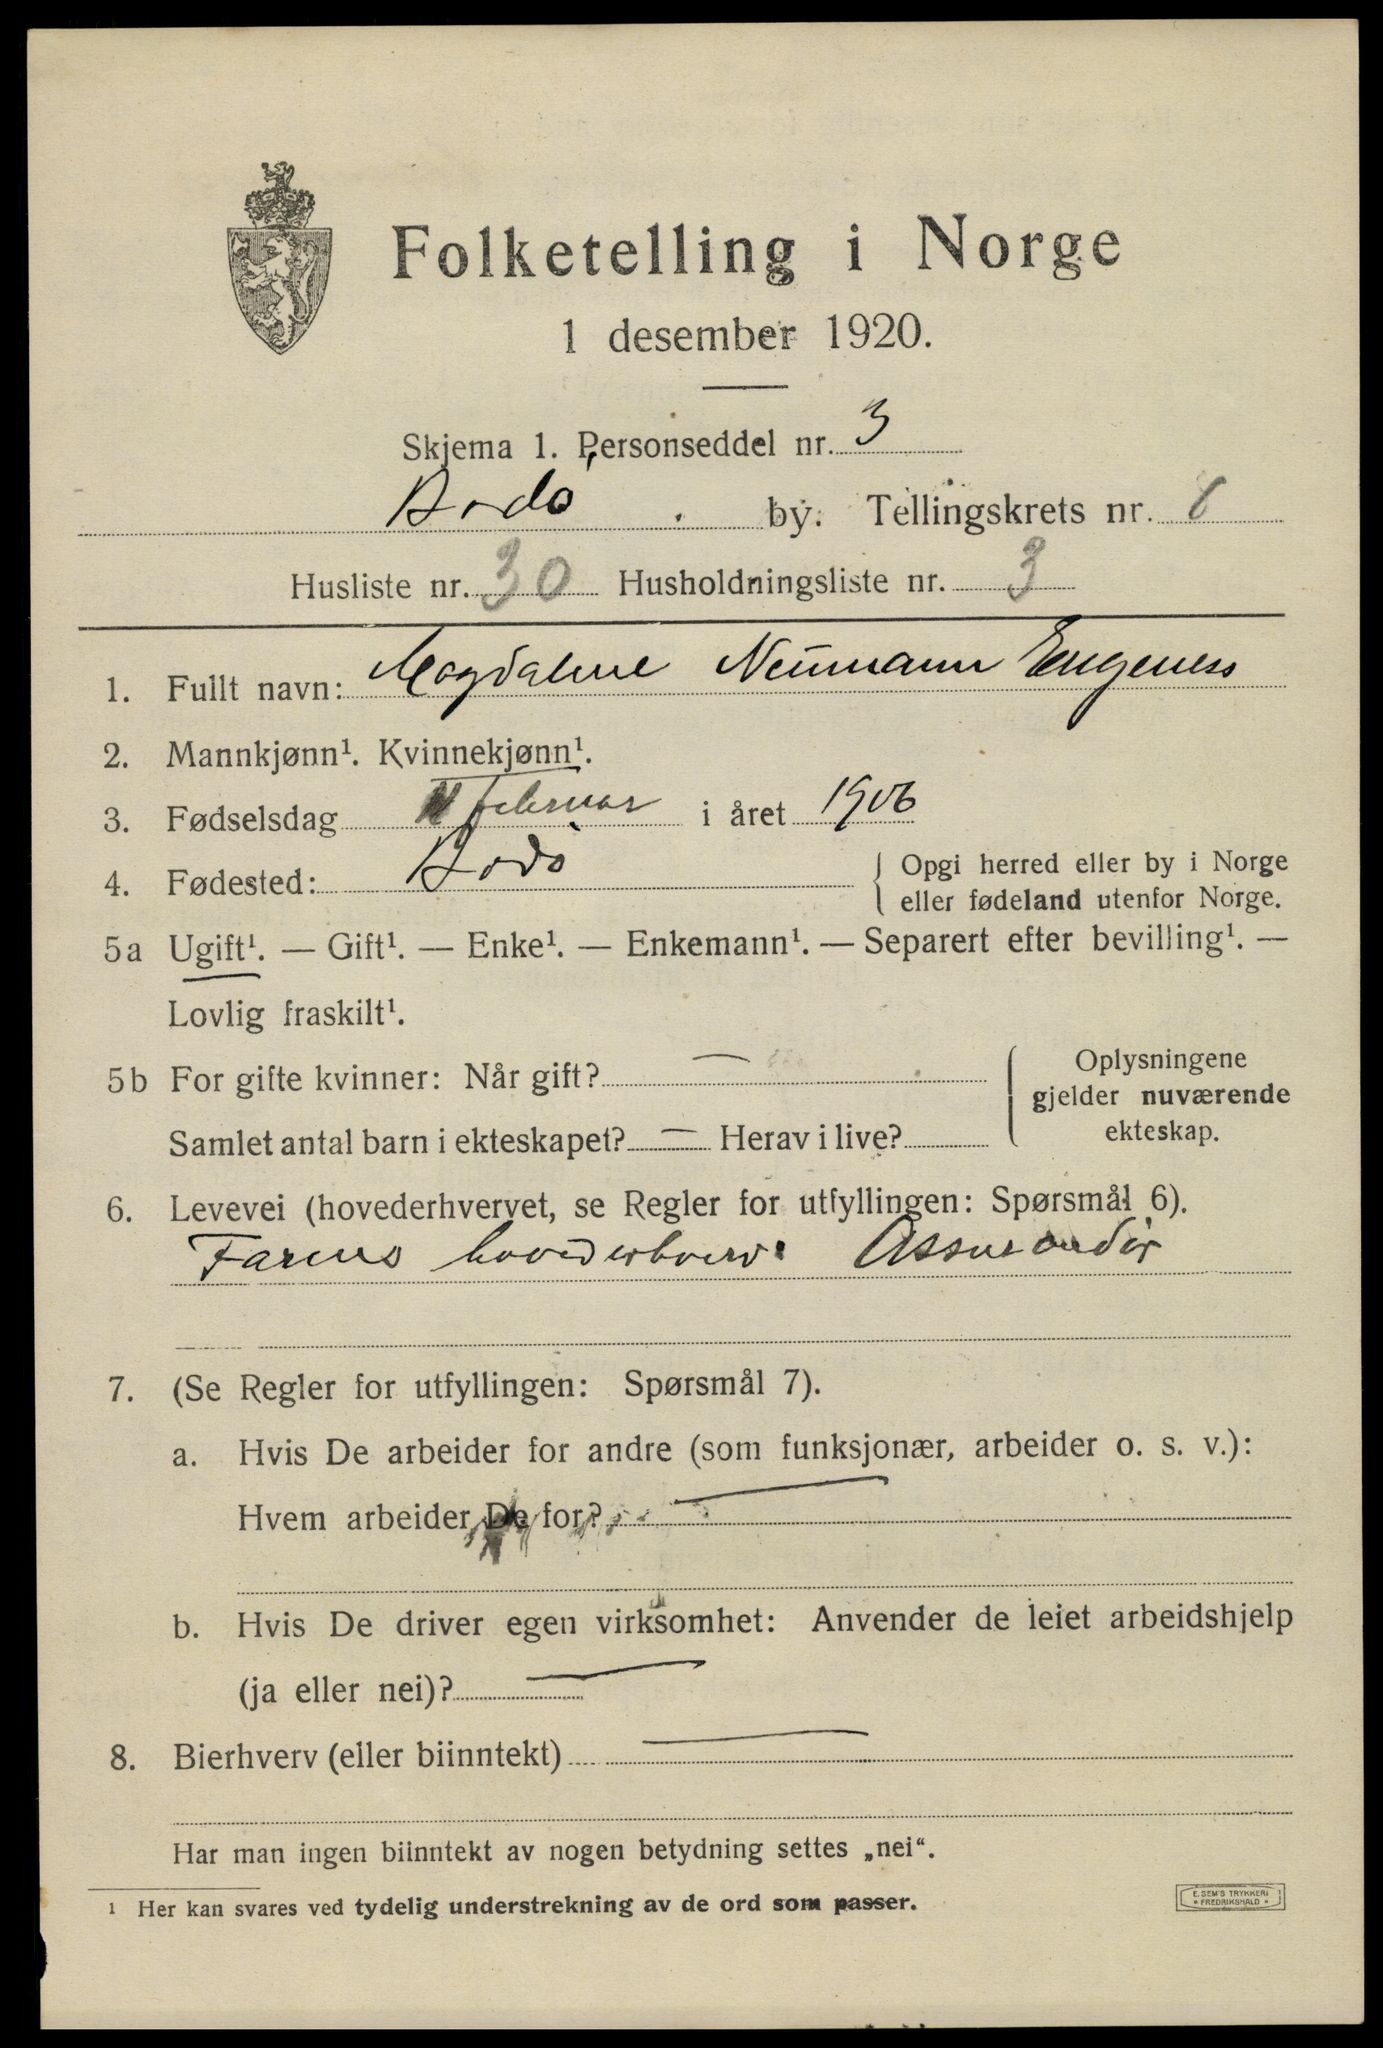 Folketelling i Norge
1 desember 1920.
Skjema 1. Personseddel nr. 3
Bodø by. Tellingskrets nr.
Husliste nr. 30 Husholdningsliste nr. 3
1. Fullt navn: Magdalene Neumann Engeness
2. Mannkjønn¹. Kvinnekjønn¹.
3. Fødselsdag februar i året 1906
4. Fødested: Bodø
{ Opgi herred eller by i Norge
eller fødeland utenfor Norge.
5a Ugift¹. — Gift¹. — Enke¹. — Enkemann¹. — Separert efter bevilling¹. —
Lovlig fraskilt¹.
5b For gifte kvinner: Når gift? —
Samlet antal barn i ekteskapet? — Herav i live?
{ Oplysningene
gjelder nuværende
ekteskap.
6. Levevei (hovederhvervet, se Regler for utfyllingen: Spørsmål 6).
Farens hovederhverv: Assurandør
7. (Se Regler for utfyllingen: Spørsmål 7).
a. Hvis De arbeider for andre (som funksjonær, arbeider o. s. v.):
Hvem arbeider De for? —
b. Hvis De driver egen virksomhet: Anvender de leiet arbeidshjelp
(ja eller nei)? —
8. Bierhverv (eller biinntekt) —
Har man ingen biinntekt av nogen betydning settes „nei“.
¹ Her kan svares ved tydelig understrekning av de ord som passer.
E. SEM'S TRYKKERI
FREDRIKSHALD